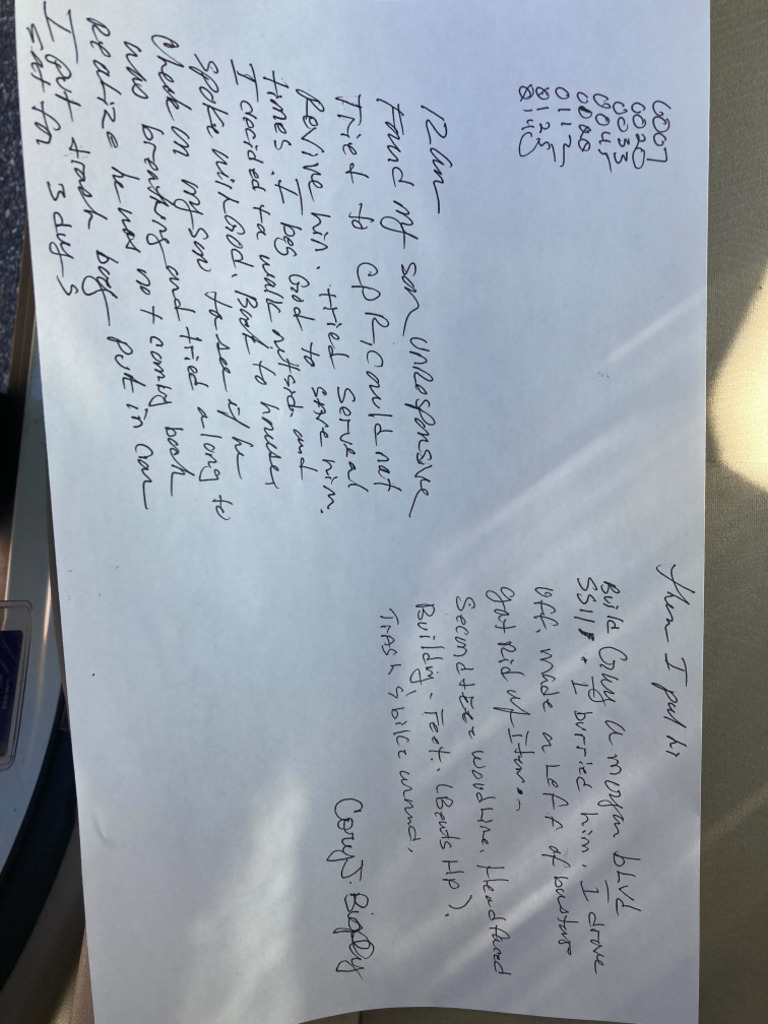 0007
0020
0033
0045
0112
0125
0140
12 am
found my son unresponsive
Tried to CPR, could not
Revive him. tried serveal
times. I beg God to save him.
I decided to walk outside and
spoke with God. Back to house
Check on my son to see if he
was breathing and tried along to
Realize he was not coming back
I put trash bag put in car
sat for 3 days
then I put hi
Build Gray a morgan bLvd
I burried him. I drove
off. made a Left of
got Rid of Items -
Second tree woodline. Head faced
Building - Feet. (Bends Hp).
Trash & bike
Cory J. Bigsby